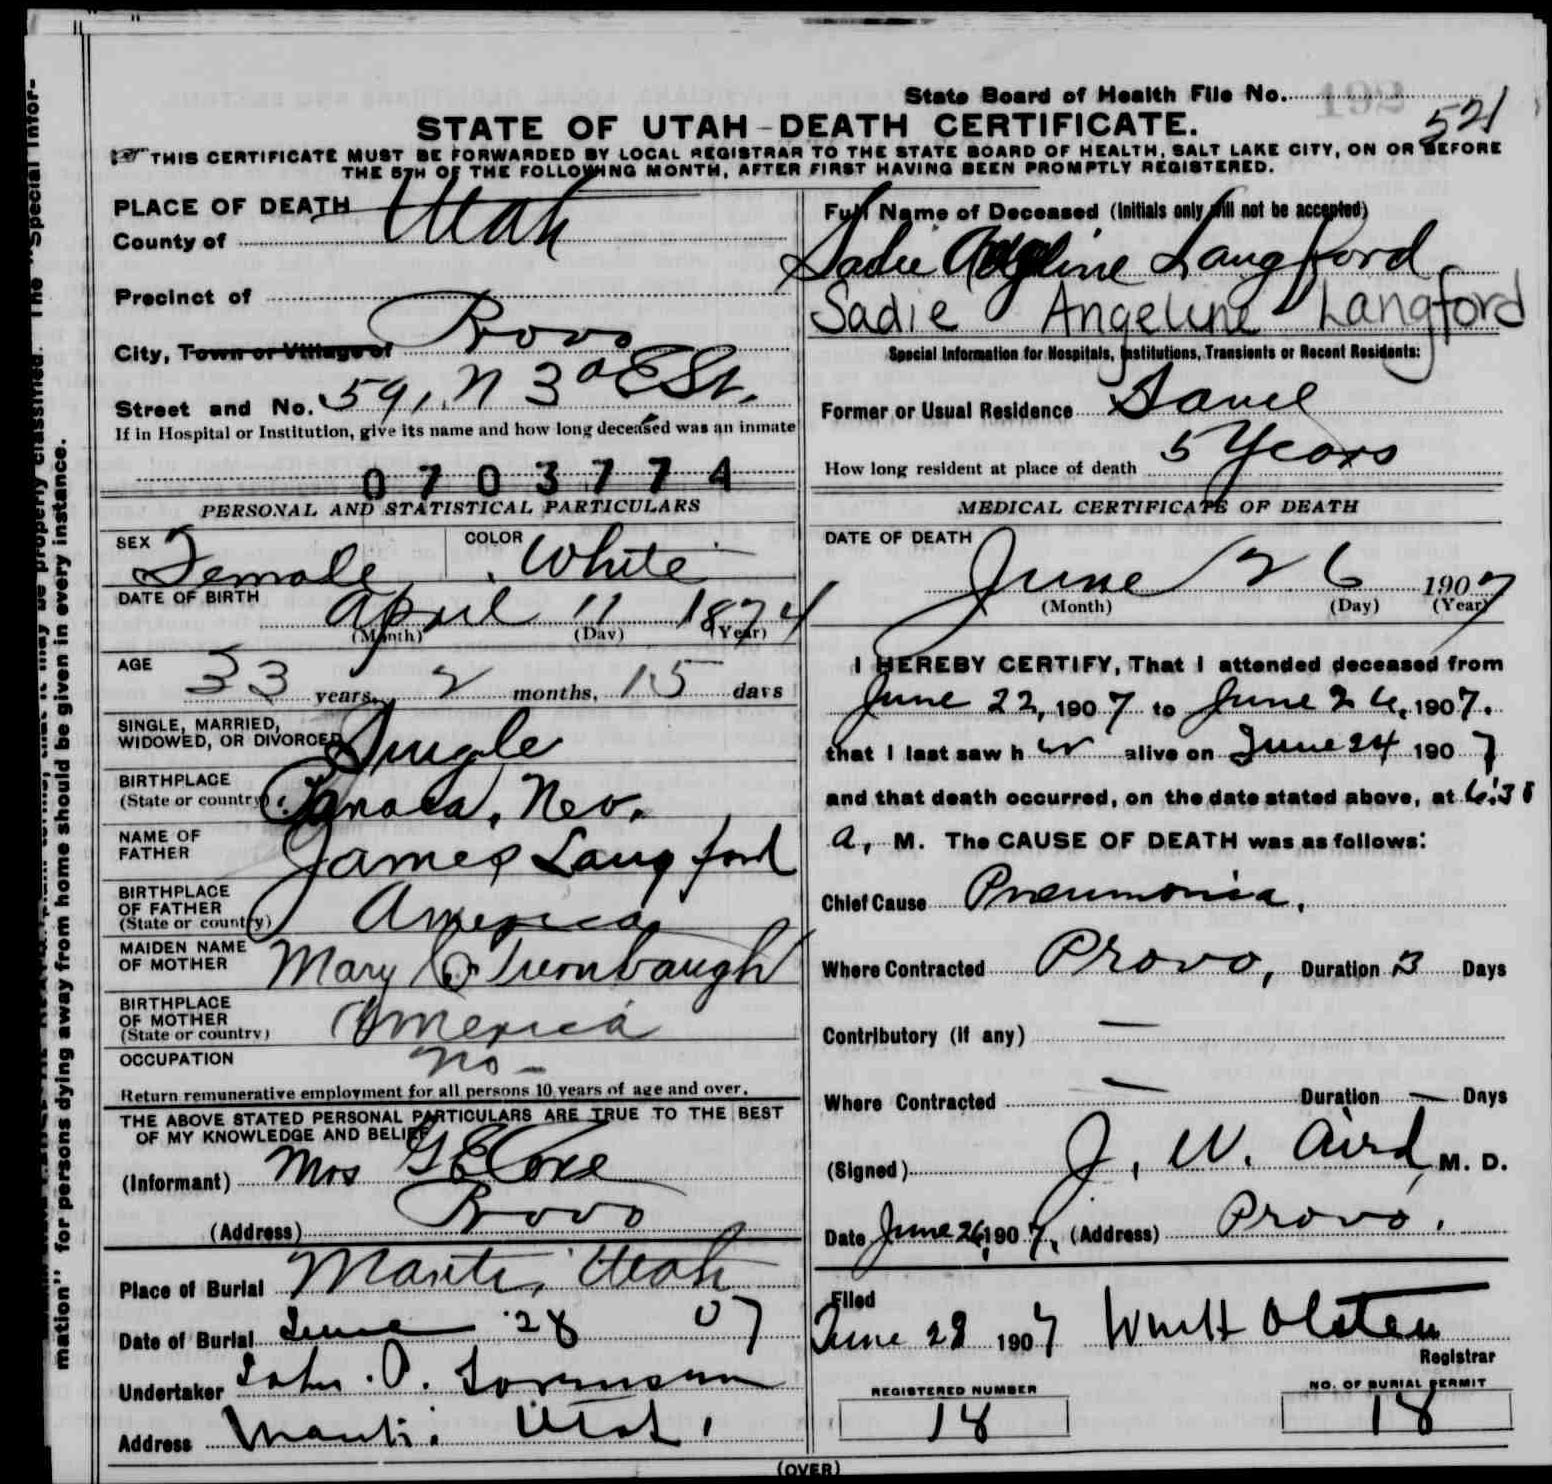 State Board of Health File No. 192
521
STATE OF UTAH - DEATH CERTIFICATE.
THIS CERTIFICATE MUST BE FORWARDED BY LOCAL REGISTRAR TO THE STATE BOARD OF HEALTH, SALT LAKE CITY, ON OR BEFORE
THE 5TH OF THE FOLLOWING MONTH, AFTER FIRST HAVING BEEN PROMPTLY REGISTERED.
PLACE OF DEATH
County of Utah
Precinct of
City, Town or Village of Provo
Street and No. 591 N 3d E St.
If in Hospital or Institution, give its name and how long deceased was an inmate
0703774
PERSONAL AND STATISTICAL PARTICULARS
SEX Female COLOR White
DATE OF BIRTH April 11 1874
(Month) (Day) (Year)
AGE 33 years, 2 months, 15 days
SINGLE, MARRIED,
WIDOWED, OR DIVORCED Single
BIRTHPLACE
(State or country) Panaca, Nev.
NAME OF
FATHER James Langford
BIRTHPLACE
OF FATHER
(State or country) America
MAIDEN NAME
OF MOTHER Mary Turnbaugh
BIRTHPLACE
OF MOTHER
(State or country) America
OCCUPATION no -
Return remunerative employment for all persons 10 years of age and over.
THE ABOVE STATED PERSONAL PARTICULARS ARE TRUE TO THE BEST
OF MY KNOWLEDGE AND BELIEF
(Informant) Mrs G E
(Address) Provo
Place of Burial Manti, Utah
Date of Burial June 28 07
Undertaker John . O. Sorensen
Address Manti. Utah.
Full Name of Deceased (Initials only will not be accepted)
Sadie Angeline Langford
Sadie Angeline Langford
Special Information for Hospitals, Institutions, Transients or Recent Residents:
Former or Usual Residence Same
How long resident at place of death 5 Years
MEDICAL CERTIFICATE OF DEATH
DATE OF DEATH
June 26 1907
(Month) (Day) (Year)
I HEREBY CERTIFY, That I attended deceased from
June 22, 1907 to June 26, 1907.
that I last saw her alive on June 24 1907
and that death occurred, on the date stated above, at 6:38
a, M. The CAUSE OF DEATH was as follows:
Chief Cause Pneumonia,
Where Contracted Provo, Duration 3 Days
Contributory (if any) —
Where Contracted — Duration — Days
(Signed) J. W. Aird, M. D.
Date June 26, 1907, (Address) Provo.
Filed
June 28 1907 Olsten
Registrar
REGISTERED NUMBER
18
NO. OF BURIAL PERMIT
18
(OVER)
mation" for persons dying away from home should be given in every instance.
may be properly classified. The "Special Infor-